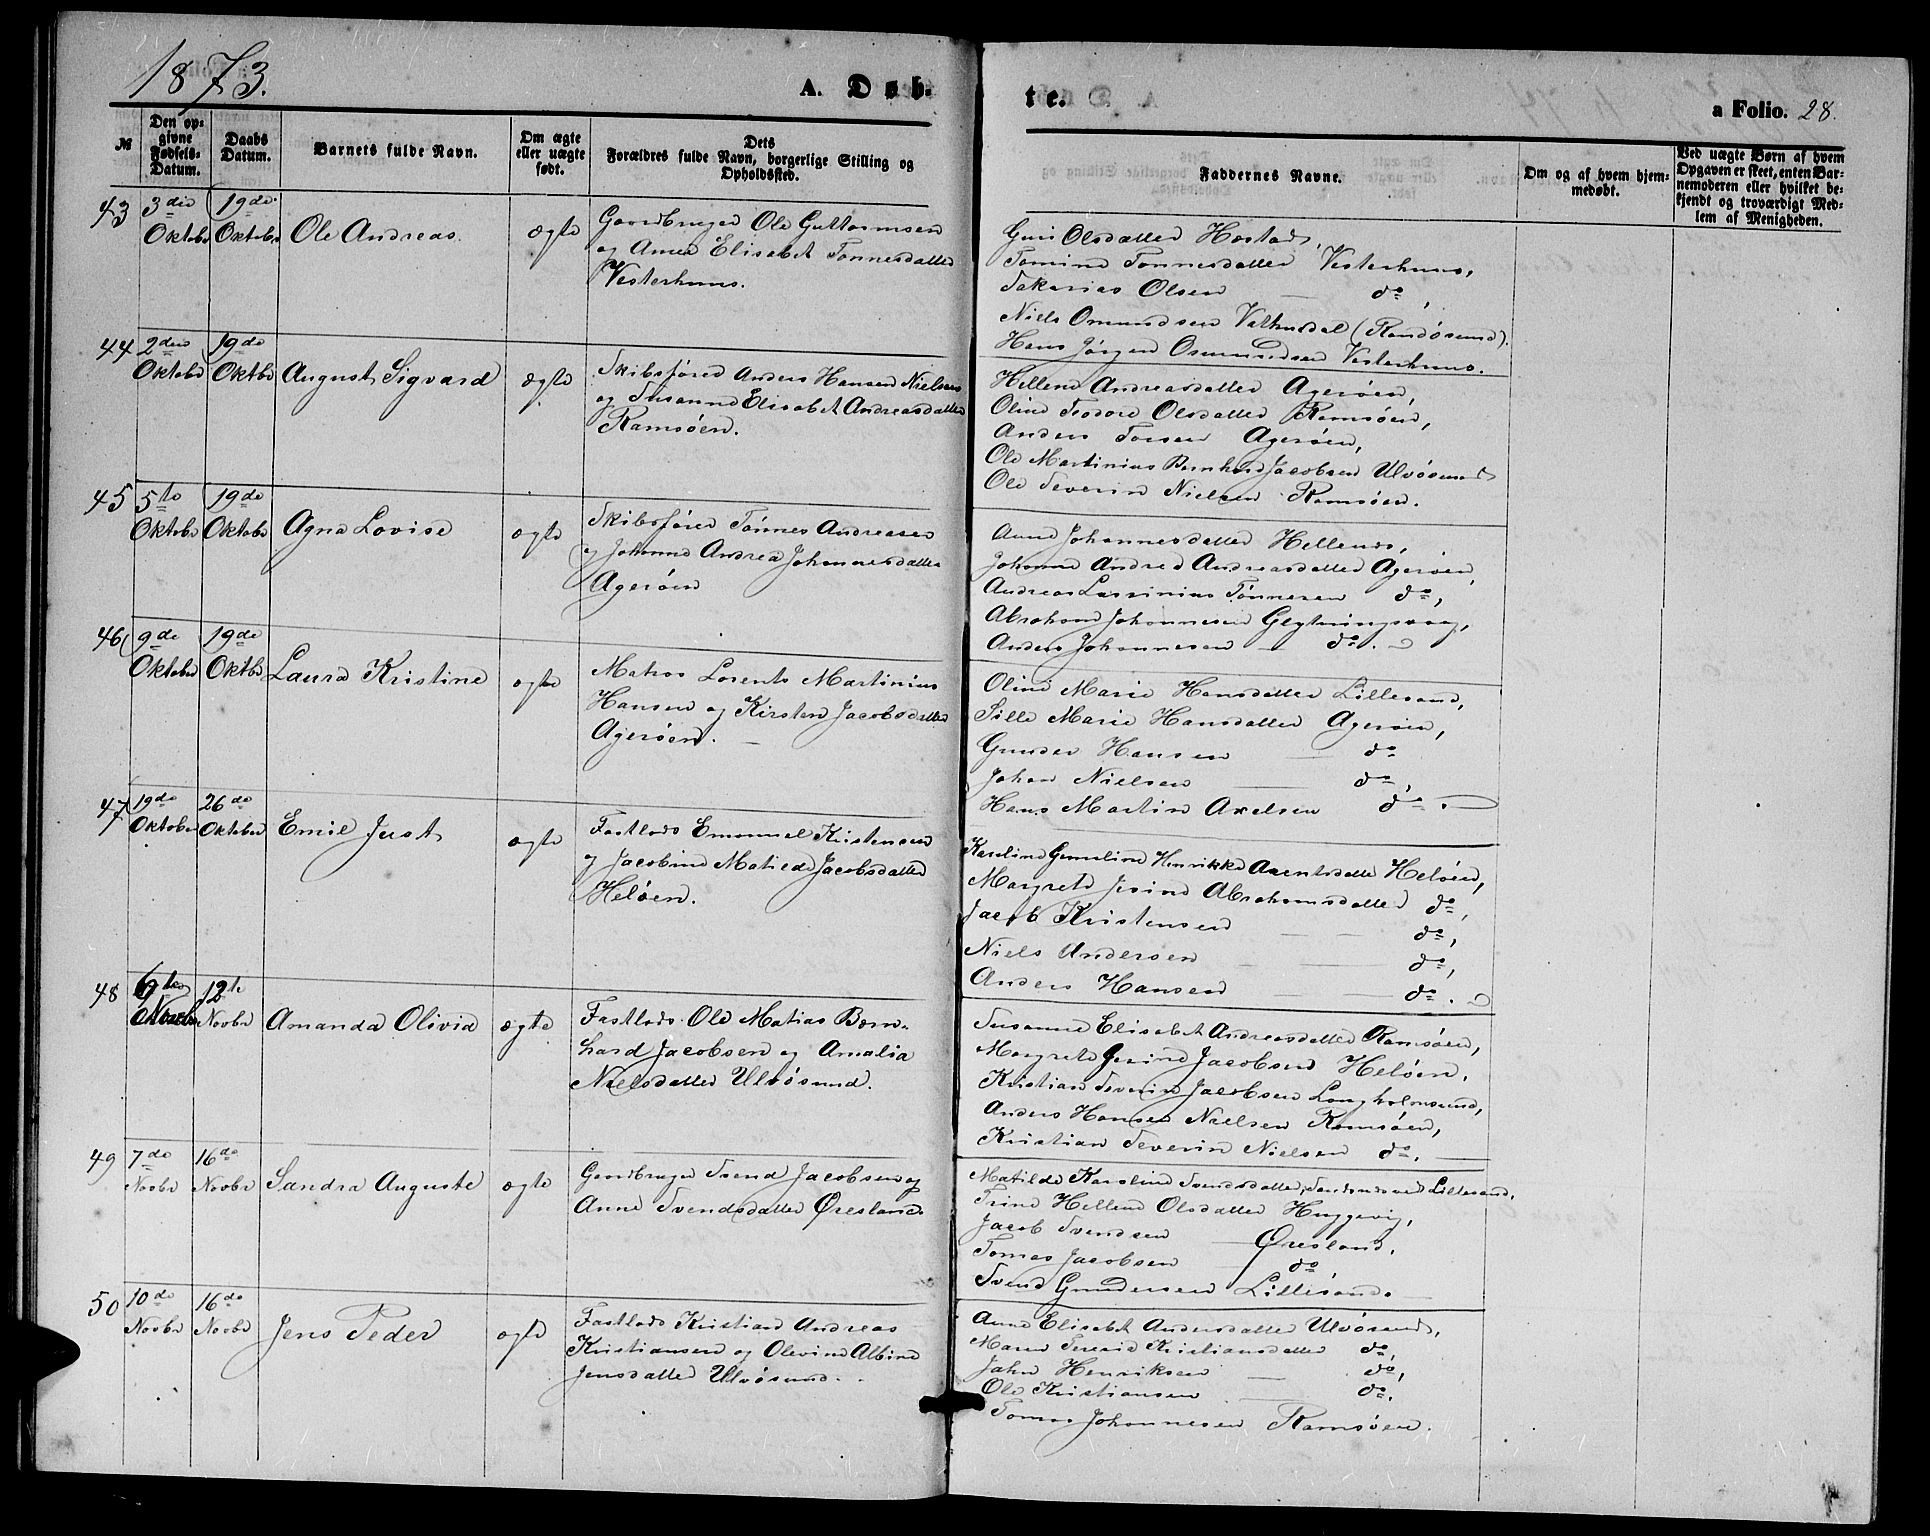 1873.
A. Døb-
te.
a Folio. 28.
№
Den op-
givne
Fødsels-
Datum.
Daabs
Datum.
Barnets fulde Navn.
Om ægte
eller uægte
født.
Dets
Forældres fulde Navn, borgerlige Stilling og
Opholdssted.
Faddernes Navne.
Om og af hvem hjem-
medøbt.
Ved uægte Børn af hvem
Opgaven er skeet, enten Bar-
nemoderen eller hvilket be-
kjendt og troværdigt Med-
lem af Menigheden.
43
3die
Oktobr
19de
Oktobr
Ole Andreas.
ægte
Gaardbruger Ole Guttormsen
og Anna Elisabet Tonnesdatter
Vesterhuus.
Guri Olsdatter Hæstad,
Tomine Tonnesdatter Vesterhuus,
Sakarias Olsen do,
Niels Omundsen Vathnedal (Randøsund).
Hans Jørgen Osmundsen Vesterhuus.
44
2den
Oktobr
19de
Oktbr
August Sigvard
ægte
Skibsfører Anders Hansen Nielsen
og Susanne Elisabet Andreasdatter
Ramsøen.
Hellene Andreasdatter Agerøen,
Oline Teodore Olsdatter Ramsøen,
Anders Agerøen,
Ole Martinius Bernhard Jacobsen Ulvøsund
Ole Severin Nielsen Ramsøen.
45
5te
Oktobr
19de
Oktobr
Agna Lovise
ægte
Skibsfører Tønnes Andreasen
og Johanne Andrea Johannesdatter
Agerøen
Anne Johannesdatter Hellenes,
Johanne Andrea Andreasdatter Agerøen,
Andreas Lassinius Tønnesen do,
Abraham Johannesen Glytningsvaag,
Anders Johannesen do.
46
9de
Oktobr
19de
Oktbr
Laura Kristine
ægte
Matros Lorents Martinius
Hansen og Kirsten Jacobsdatter
Agerøen.
Oline Marie Hansdatter Lillesand,
Sille Marie Hansdatter Agerøen,
Gunder Hansen do
Johan Nielsen do,
Hans Martin Axelsen do.
47
19de
Oktober
26de
Oktober
Emil Just
ægte
Fastlods Emanuel Kristensen
og Jacobine Matilde Jacobsdatter
Heløen.
Karoline Gunneline Henrikke Arentsdatter Heløen,
Margrete Jesine Abrahamsdatter do,
Jacob Kristensen do,
Niels Andersen do,
Anders Hansen do.
48
6te
Novbr
12te
Novbr
Amanda Olivia
ægte
Fastlods Ole Matias Bern-
hard Jacobsen og Amalia
Nielsdatter Ulvøsund.
Susanne Elisabet Andreasdatter Ramsøen,
Margrete Jesine Jacobsen Heløen,
Kristian Severin Jacobsen Langholmsund,
Anders Hansen Nielsen Ramsøen,
Kristian Severin Nielsen do.
49
7de
Novbr
16de
Novbr
Sandra Auguste
ægte
Gaardbruger Svend Jacobsen og
Anne Svendsdatter Øresland.
Matilde Karoline Svendsdatter, ved Lillesand,
Trine Hellene Olsdatter Huggevig,
Jacob Svendsen Øresland,
Tomas Jacobsen do,
Svend Gundersen Lillesand.
50
10de
Novbr
16de
Novbr
Jens Peder
ægte
Fastlods Kristian Andreas
Kristiansen og Olevine Albine
Jensdatter Ulvøsund.
Anne Elisabet Andersdatter Ulvøsund,
Maren Teresie Kristiansdatter do,
Jahn Henriksen do,
Ole Kristiansen do.
Tomas Johannesen Ramsøen.